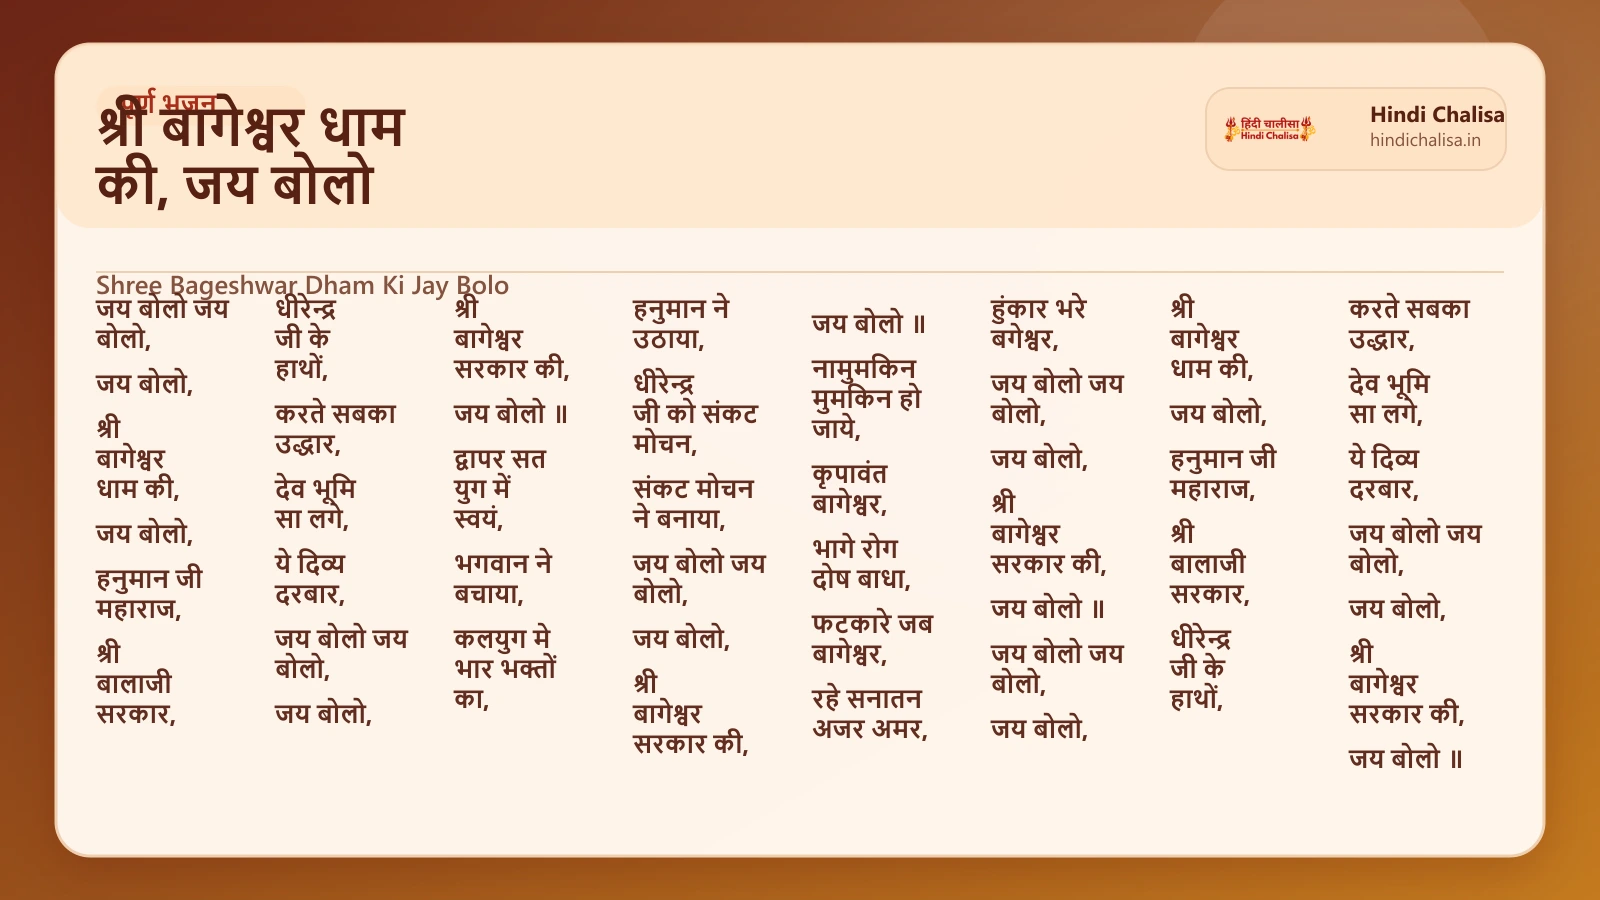 पूर्ण भजन
श्री बागेश्वर धाम
की, जय बोलो
हिंदी चालीसा
Hindi Chalisa
Hindi Chalisa
hindichalisa.in
Shree Bageshwar Dham Ki Jay Bolo
जय बोलो जय
बोलो,
जय बोलो,
श्री
बागेश्वर
धाम की,
जय बोलो,
हनुमान जी
महाराज,
श्री
बालाजी
सरकार,
धीरेन्द्र
जी के
हाथों,
करते सबका
उद्धार,
देव भूमि
सा लगे,
ये दिव्य
दरबार,
जय बोलो जय
बोलो,
जय बोलो,
श्री
बागेश्वर
सरकार की,
जय बोलो ॥
द्वापर सत
युग में
स्वयं,
भगवान ने
बचाया,
कलयुग मे
भार भक्तों
का,
हनुमान ने
उठाया,
धीरेन्द्र
जी को संकट
मोचन,
संकट मोचन
ने बनाया,
जय बोलो जय
बोलो,
जय बोलो,
श्री
बागेश्वर
सरकार की,
जय बोलो ॥
नामुमकिन
मुमकिन हो
जाये,
कृपावंत
बागेश्वर,
भागे रोग
दोष बाधा,
फटकारे जब
बागेश्वर,
रहे सनातन
अजर अमर,
हुंकार भरे
बगेश्वर,
जय बोलो जय
बोलो,
जय बोलो,
श्री
बागेश्वर
सरकार की,
जय बोलो ॥
जय बोलो जय
बोलो,
जय बोलो,
श्री
बागेश्वर
धाम की,
जय बोलो,
हनुमान जी
महाराज,
श्री
बालाजी
सरकार,
धीरेन्द्र
जी के
हाथों,
करते सबका
उद्धार,
देव भूमि
सा लगे,
ये दिव्य
दरबार,
जय बोलो जय
बोलो,
जय बोलो,
श्री
बागेश्वर
सरकार की,
जय बोलो ॥